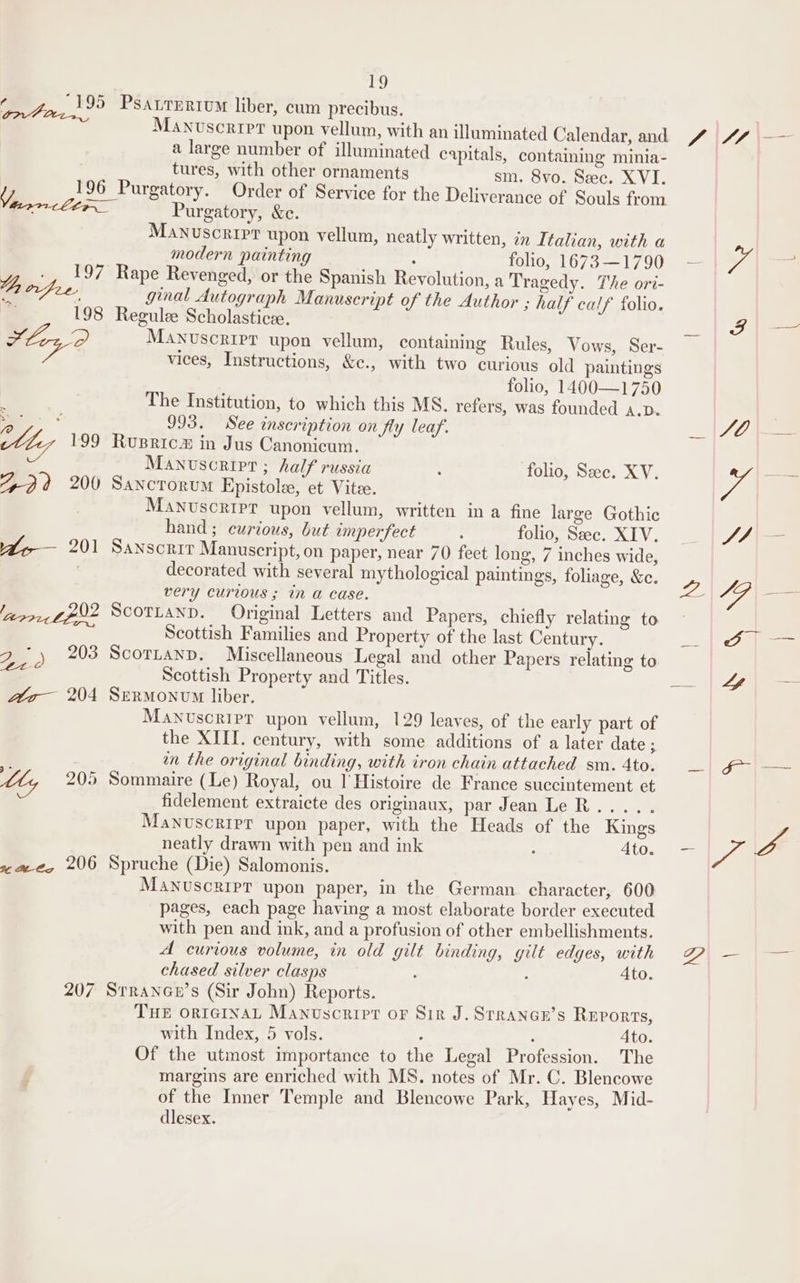 19
195 PSALTERIUM liber, cum precibus.
MANUSCRIPT upon vellum, with an illuminated Calendar, and
a large number of illuminated capitals, containing minia-
tures, with other ornaments sm. 8vo. Sæc. XVI.
196 Purgatory. Order of Service for the Deliverance of Souls from
Purgatory, &c.
MANUSCRIPT upon vellum, neatly written, in Italian, with a
modern painting folio, 1673—1790
197 Rape Revenged, or the Spanish Revolution, a Tragedy. The ori-
ginal Autograph Manuscript of the Author; half calf folio.
198 Regulæ Scholasticæ.
MANUSCRIPT upon vellum, containing Rules, Vows, Ser-
vices, Instructions, &c., with two curious old paintings
folio, 1400—1750
The Institution, to which this MS. refers, was founded A.D.
993. See inscription on fly leaf.
199 RUBRICÆ in Jus Canonicum.
MANUSCRIPT; half russia folio, Sæc. XV.
200 SANCTORUM Epistolæ, et Vitæ.
MANUSCRIPT upon vellum, written in a fine large Gothic
hand; curious, but imperfect folio, Sæc. XIV.
201 SANSCRIT Manuscript, on paper, near 70 feet long, 7 inches wide,
decorated with several mythological paintings, foliage, &c.
very curious; in a case.
202 SCOTLAND. Original Letters and Papers, chiefly relating to
Scottish Families and Property of the last Century.
203 SCOTLAND. Miscellaneous Legal and other Papers relating to
Scottish Property and Titles.
204 SERMONUM liber.
MANUSCRIPT upon vellum, 129 leaves, of the early part of
the XIII. century, with some additions of a later date;
in the original binding, with iron chain attached sm. 4to.
205 Sommaire (Le) Royal, ou l'Histoire de France succintement et
fidelement extraicte des originaux, par Jean Le R.....
MANUSCRIPT upon paper, with the Heads of the Kings
neatly drawn with pen and ink 4to.
206 Spruche (Die) Salomonis.
MANUSCRIPT upon paper, in the German character, 600
pages, each page having a most elaborate border executed
with pen and ink, and a profusion of other embellishments.
A curious volume, in old gilt binding, gilt edges, with
chased silver clasps 4to.
207 STRANGE'S (Sir John) Reports.
THE ORIGINAL MANUSCRIPT OF SIR J. STRANGE'S REPORTS,
with Index, 5 vols. 4to.
Of the utmost importance to the Legal Profession. The
margins are enriched with MS. notes of Mr. C. Blencowe
of the Inner Temple and Blencowe Park, Hayes, Mid-
dlesex.